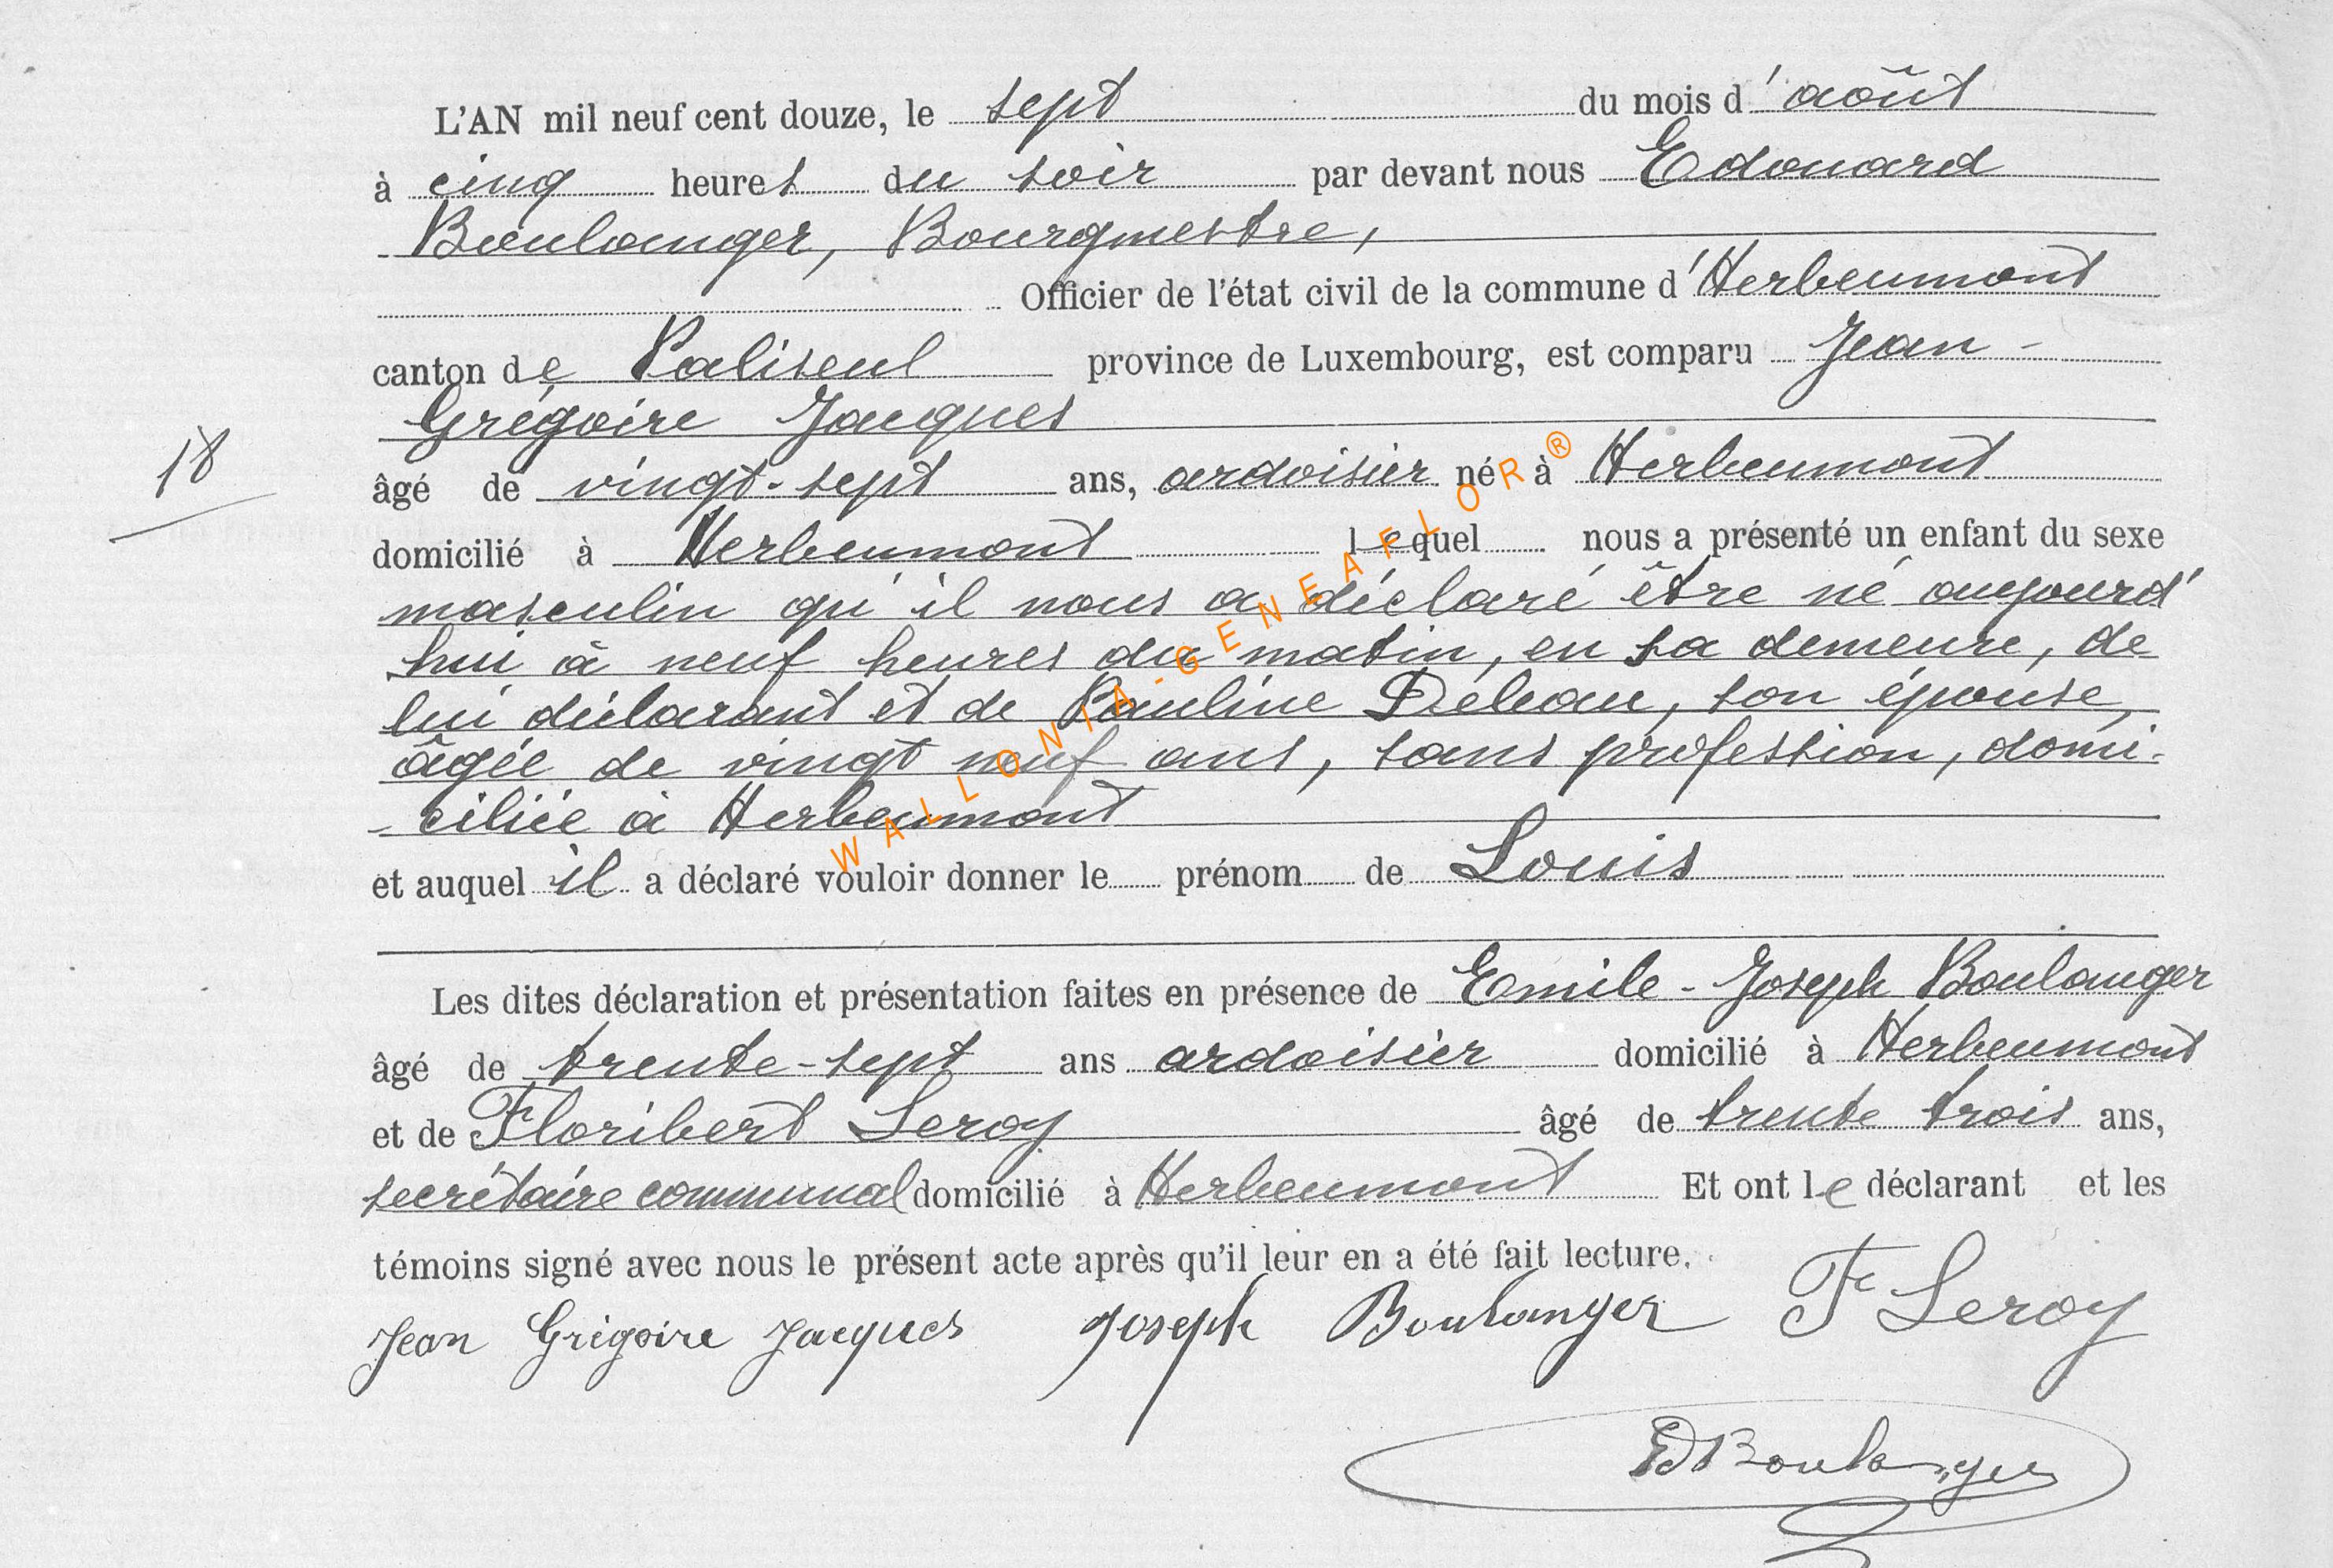 L'AN mil neuf cent douze, le sept du mois d'août
à cinq heures du soir par devant nous Edouard
Boulanger, Bourgmestre,
Officier de l'état civil de la commune d'Herbeumont
canton de Paliseul province de Luxembourg, est comparu Jean-
Grégoire Jacques
18
âgé de vingt-sept ans, ardoisier né à Herbeumont
domicilié à Herbeumont lequel nous a présenté un enfant du sexe
masculin qu'il nous a déclaré être né aujourd'
hui à neuf heures du matin, en sa demeure, de
lui déclarant et de Pauline Déleau, son épouse,
âgée de vingt neuf ans, sans profession, domi-
-ciliée à Herbeumont
et auquel il a déclaré vouloir donner le prénom de Louis
Les dites déclaration et présentation faites en présence de Emile-Joseph Boulanger
âgé de trente-sept ans ardoisier domicilié à Herbeumont
et de Floribert Leroy âgé de trente trois ans,
secrétaire communal domicilié à Herbeumont Et ont le déclarant et les
témoins signé avec nous le présent acte après qu'il leur en a été fait lecture.
Jean Grégoire Jacques Joseph Boulanger F Leroy
Ed Boulanger
WALLONIA-GENEAFLOR®